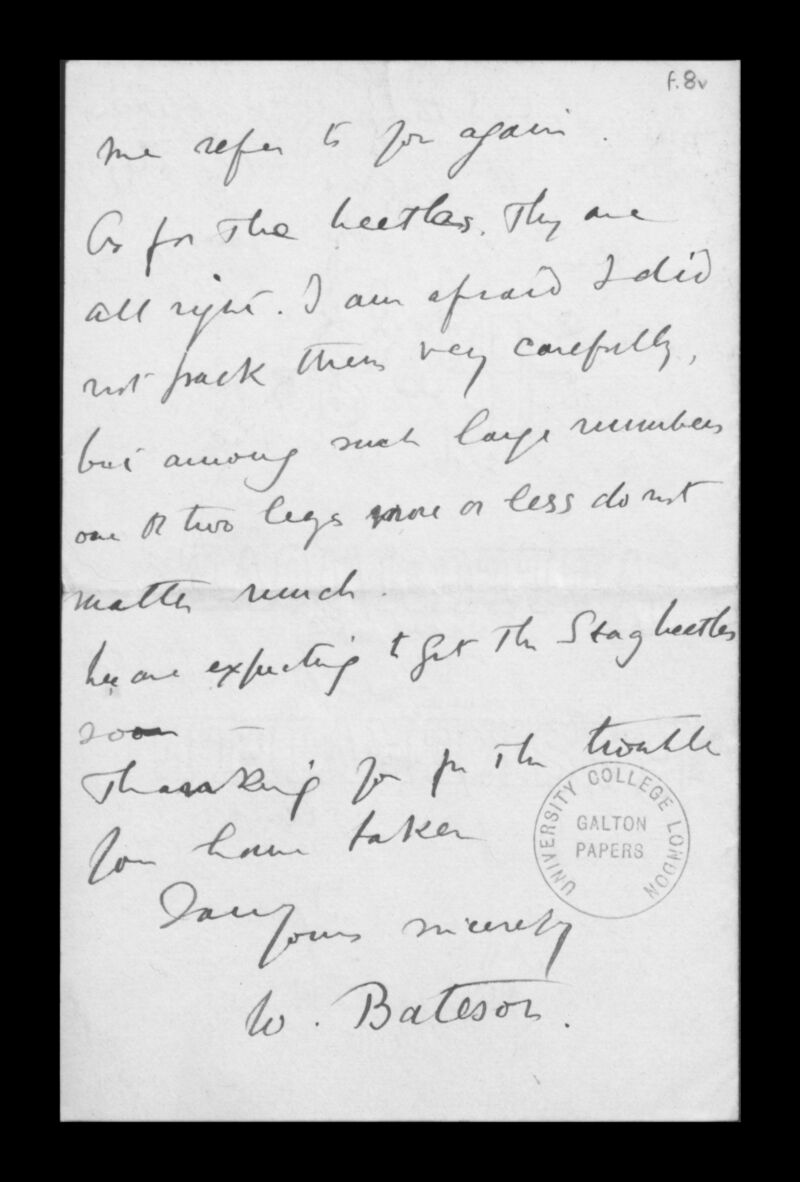 f.8v
me refer to you again.
As for the beetles. They are
all right. I am afraid I did
not pack them very carefully,
but among such large numbers
one or two legs more or less do not
matter much.
We are expecting to get the Stag beetles
soon
Thanking you for the trouble
you have taken
I am
yours sincerely
W. Bateson.
UNIVERSITY COLLEGE LONDON
GALTON
PAPERS